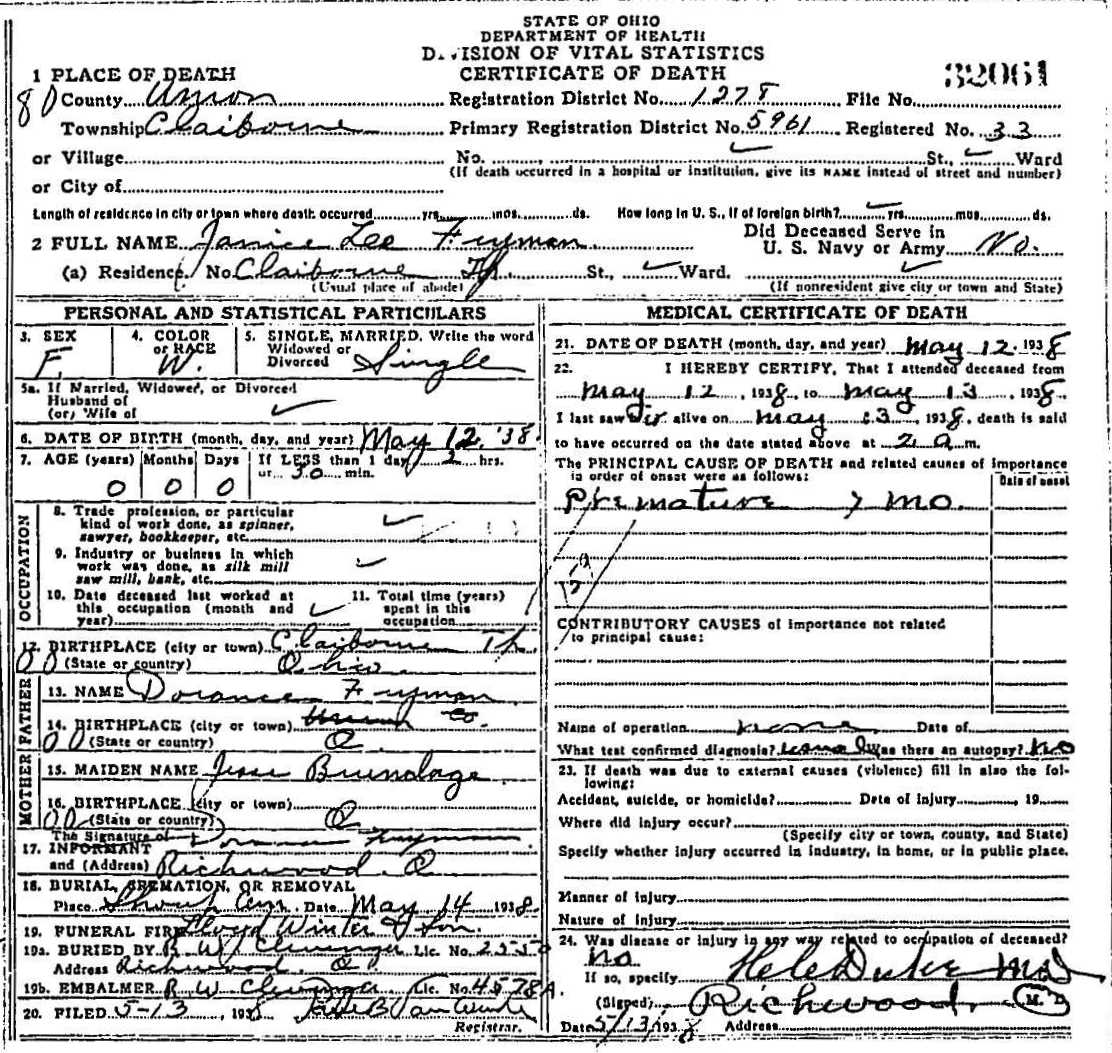 STATE OF OHIO
DEPARTMENT OF HEALTH
DIVISION OF VITAL STATISTICS
CERTIFICATE OF DEATH
32061
1 PLACE OF DEATH
80 County Union Registration District No. 1278 File No.
Township Claiborne Primary Registration District No. 5961 Registered No. 33
or Village No. St., Ward
(If death occurred in a hospital or institution, give its NAME instead of street and number)
or City of
Length of residence in city or town where death occurred yrs. mos. ds. How long in U. S., if of foreign birth? yrs. mos. ds.
2 FULL NAME Janice Lee Fryman Did Deceased Serve in U. S. Navy or Army No.
(a) Residence, No. Claiborne Tp. St., Ward.
(Usual place of abode) (If nonresident give city or town and State)
PERSONAL AND STATISTICAL PARTICULARS
3. SEX F. 4. COLOR or RACE W. 5. SINGLE, MARRIED, Write the word Widowed or Divorced Single
5a. If Married, Widower, or Divorced
Husband of
(or) Wife of
6. DATE OF BIRTH (month, day, and year) May 12, '38.
7. AGE (years) Months Days If LESS than 1 day 2 hrs.
or 30 min.
0 0 0
OCCUPATION
8. Trade profession, or particular
kind of work done, as spinner,
sawyer, bookkeeper, etc.
9. Industry or business in which
work was done, as silk mill
saw mill, bank, etc.
10. Date deceased last worked at this occupation (month and year)
11. Total time (years) spent in this occupation
12. BIRTHPLACE (city or town) Claiborne Tp.
00 (State or country) Ohio
FATHER
13. NAME Dorance Fryman
14. BIRTHPLACE (city or town) Co.
00 (State or country) O.
MOTHER
15. MAIDEN NAME Brundage
16. BIRTHPLACE (city or town)
00 (State or country) O
The Signature of Fryman
17. INFORMANT
and (Address) Richwood O
18. BURIAL, CREMATION, OR REMOVAL
Place Cem. Date May 14 1938.
19. FUNERAL FIRM Winter & Son.
19a. BURIED BY R. W. Lic. No. 2555
Address Richwood, O.
19b. EMBALMER R W Lic. No. 4578A.
20. FILED 5-13, 1938
Registrar.
MEDICAL CERTIFICATE OF DEATH
21. DATE OF DEATH (month, day, and year) May 12, 1938
22. I HEREBY CERTIFY, That I attended deceased from
May 12, 1938, to May 13, 1938.
I last saw alive on May 13, 1938, death is said
to have occurred on the date stated above at 2 a m.
The PRINCIPAL CAUSE OF DEATH and related causes of importance
in order of onset were as follows: Date of onset
Premature 7 mo.
CONTRIBUTORY CAUSES of importance not related
to principal cause:
Name of operation none Date of
What test confirmed diagnosis? Was there an autopsy? no
23. If death was due to external causes (violence) fill in also the following:
Accident, suicide, or homicide? Date of injury, 19
Where did injury occur?
(Specify city or town, county, and State)
Specify whether injury occurred in industry, in home, or in public place.
Manner of injury
Nature of injury
24. Was disease or injury in any way related to occupation of deceased?
no
If so, specify
(Signed) Duke M. D.
Date 5/13/1938 Address Richwood